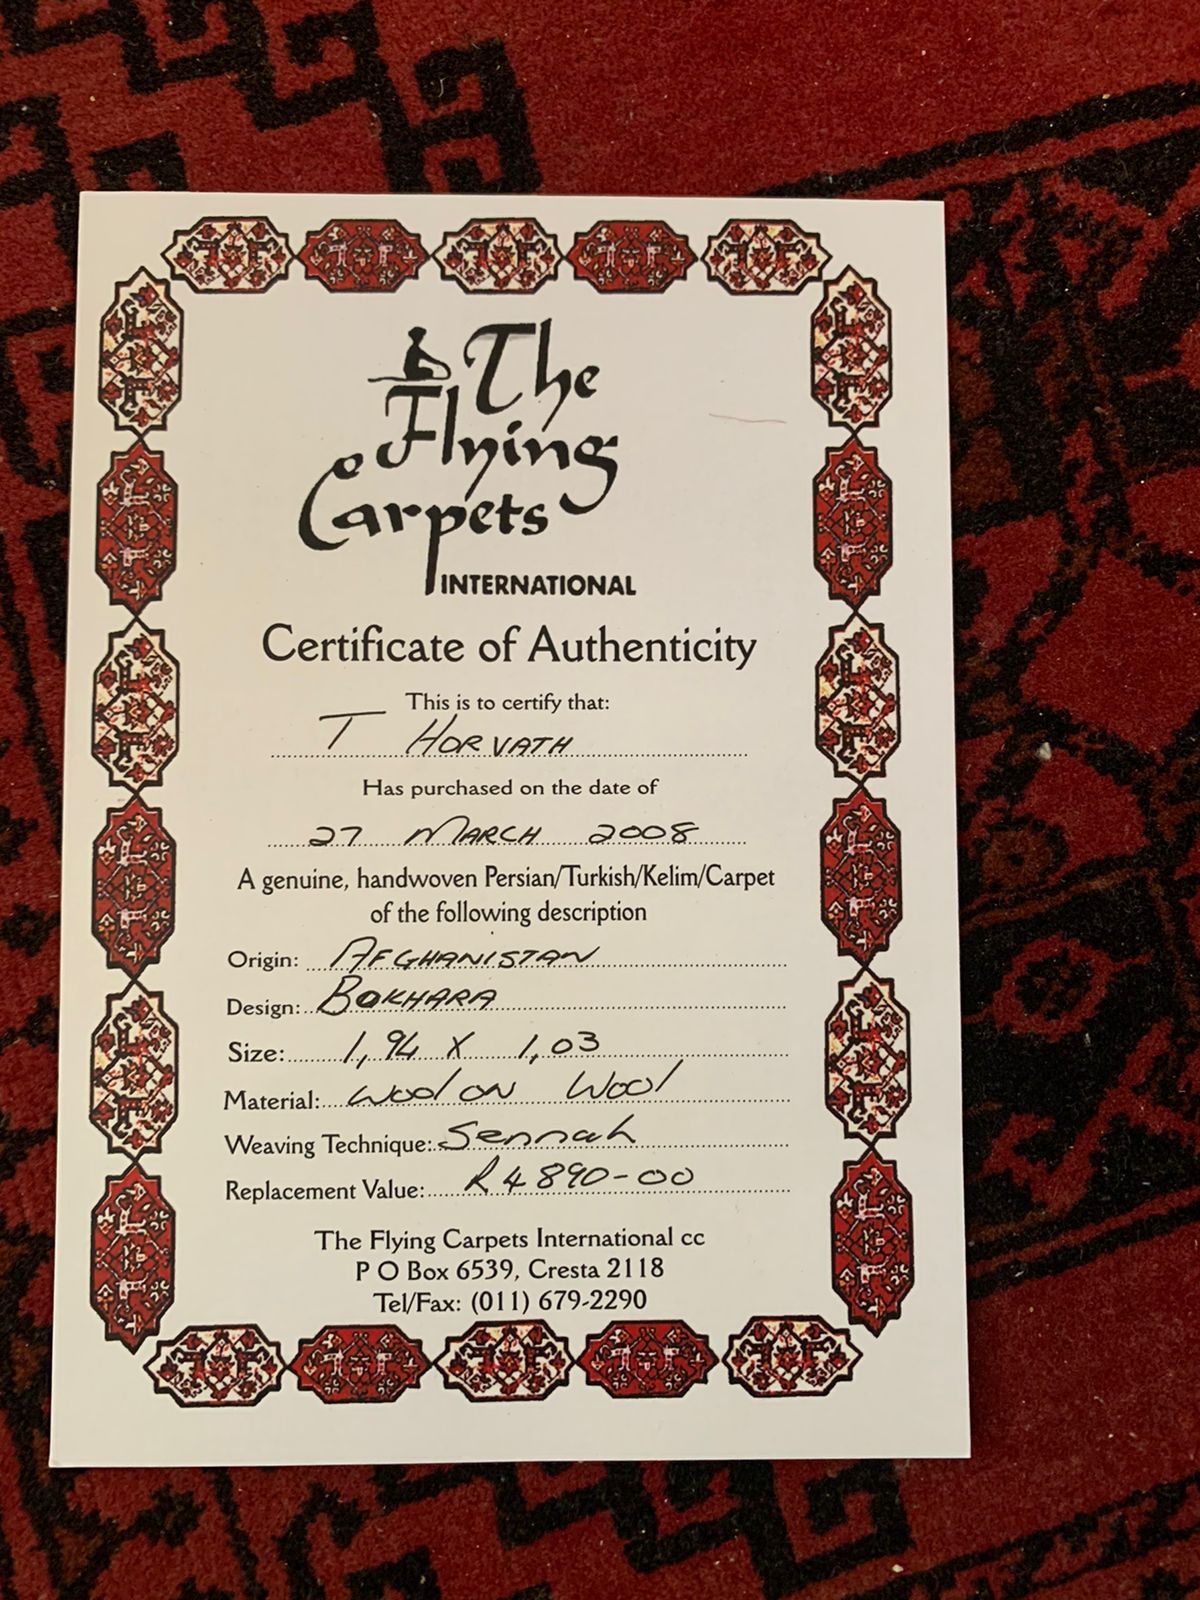 The
Flying
Carpets
INTERNATIONAL
Certificate of Authenticity
This is to certify that:
T HORVATH
Has purchased on the date of
27 MARCH 2008
A genuine, handwoven Persian/Turkish/Kelim/Carpet
of the following description
Origin: AFGHANISTAN
Design: BOKHARA
Size: 1,94 X 1,03
Material: Wool on Wool
Weaving Technique: Sennah
Replacement Value: R4890-00
The Flying Carpets International cc
P O Box 6539, Cresta 2118
Tel/Fax: (011) 679-2290